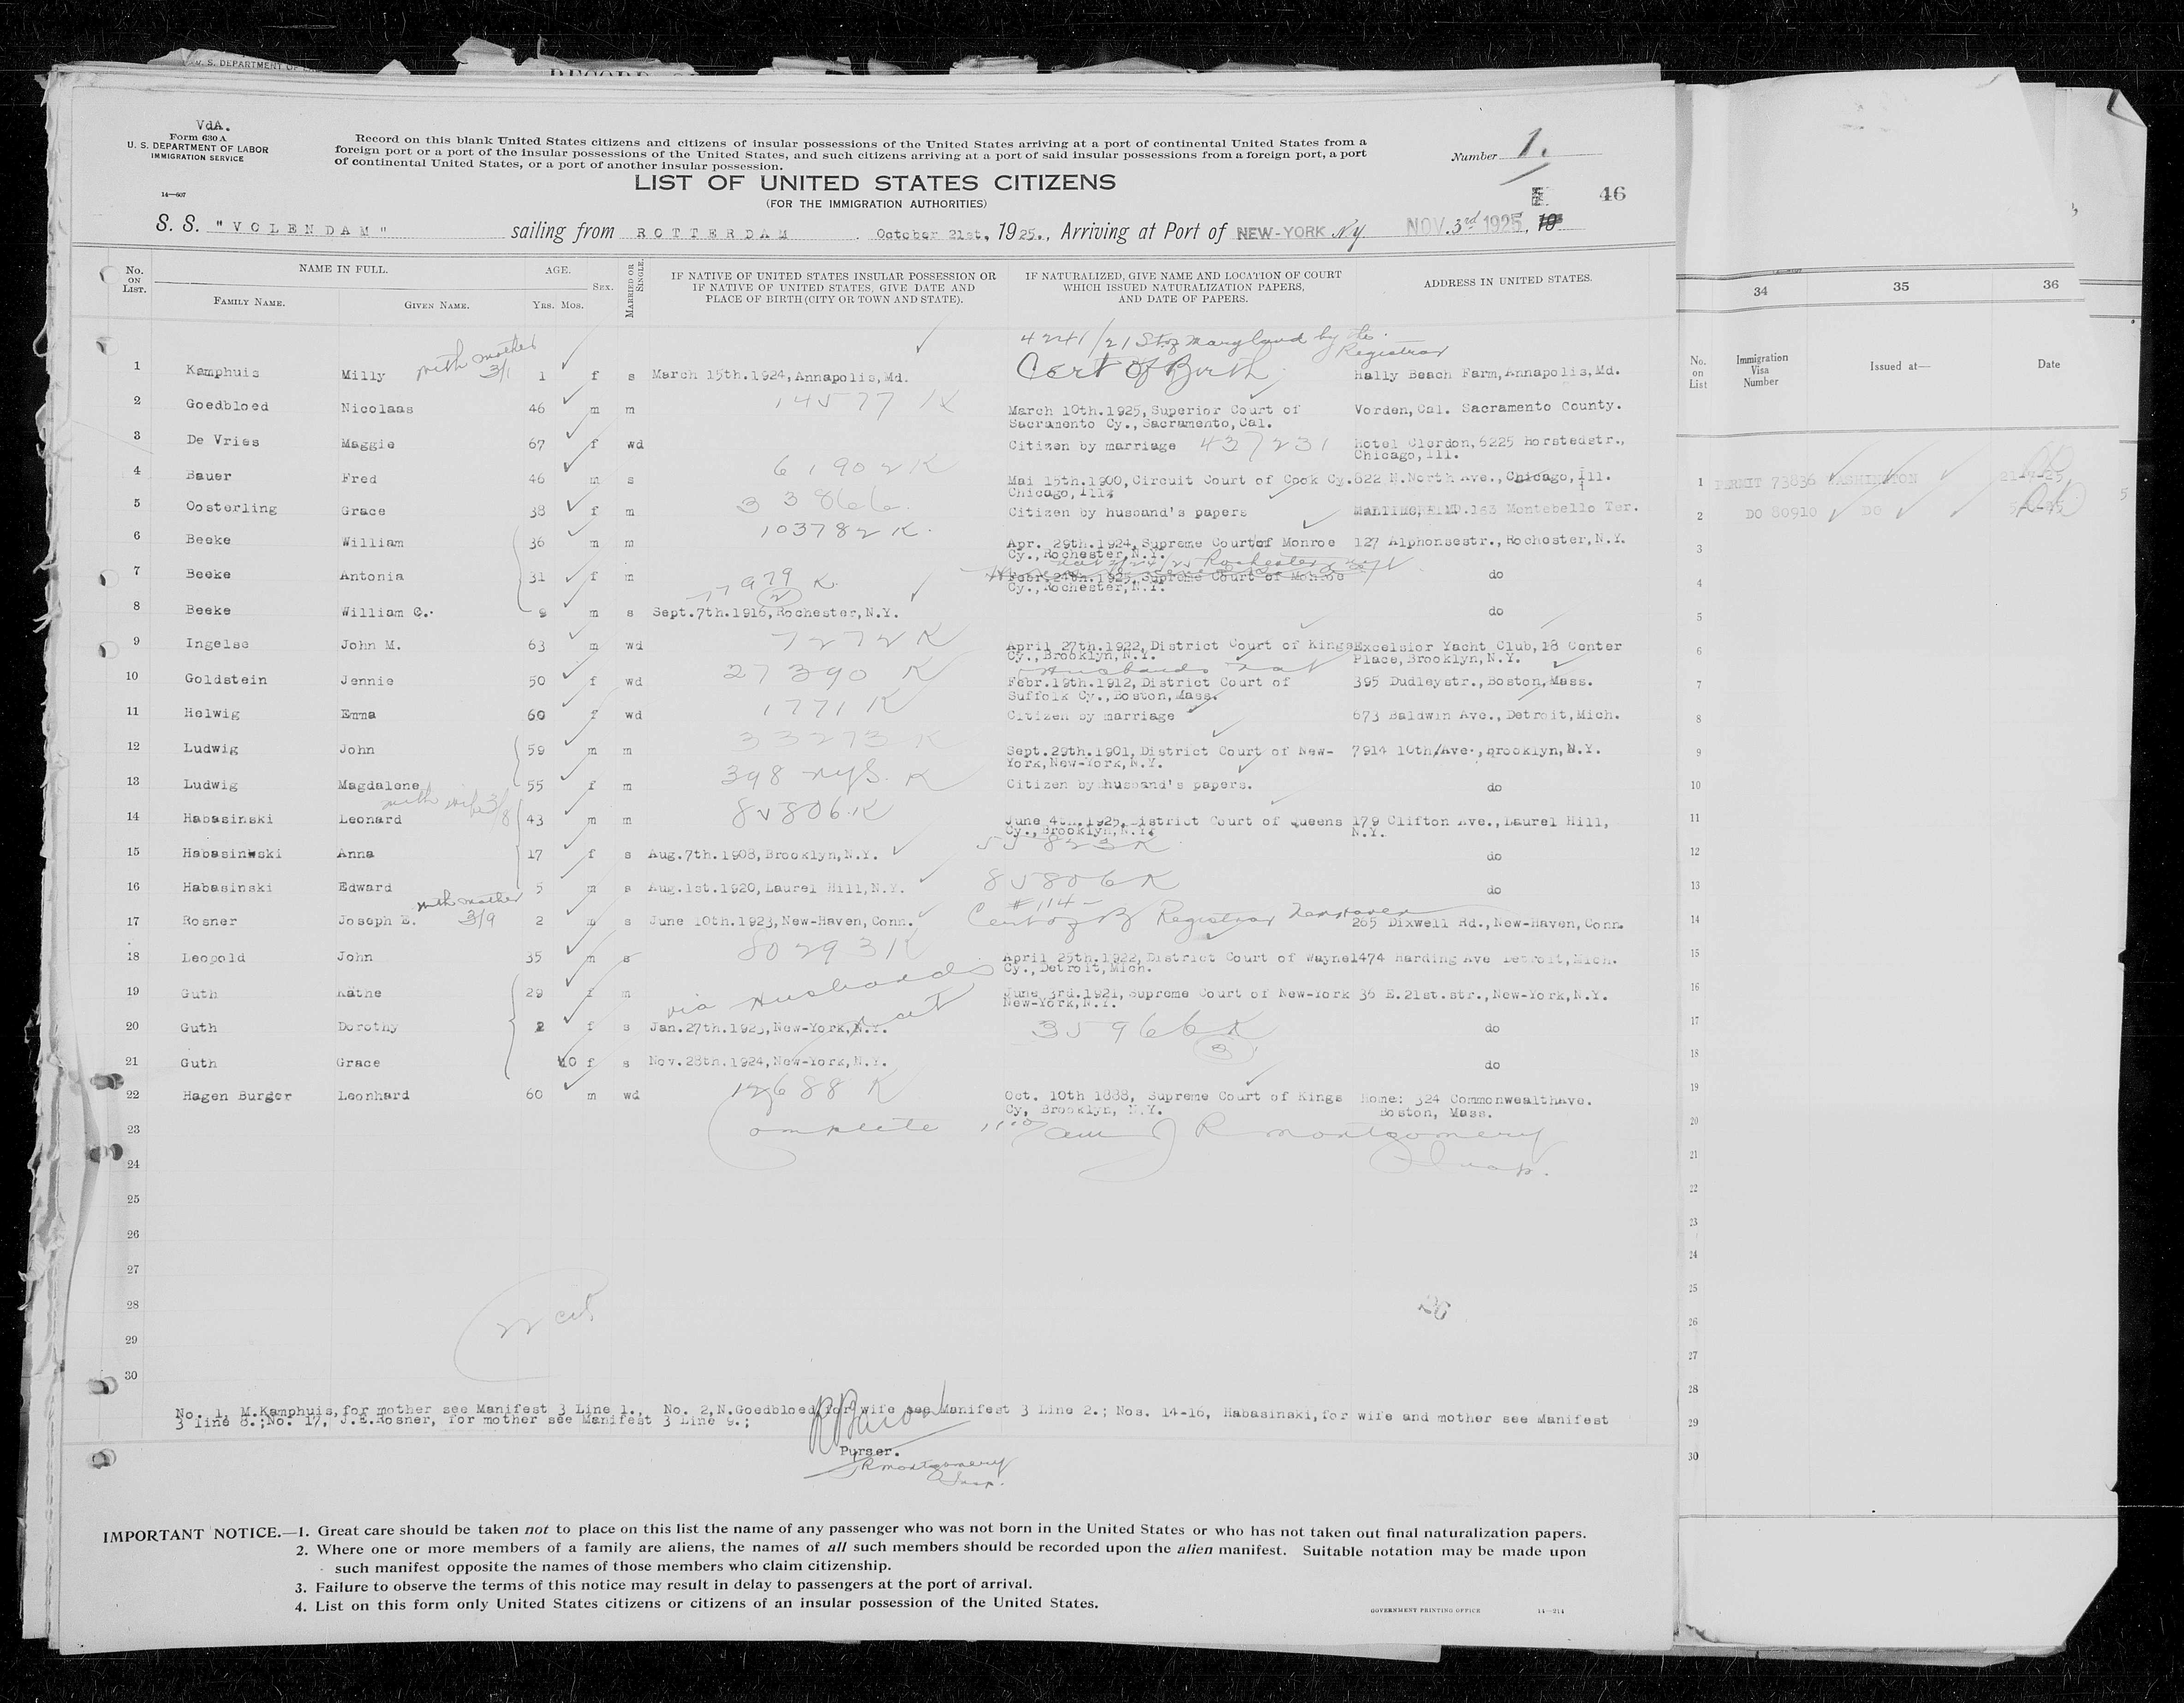 U. S. DEPARTMENT OF
VdA.
Form 630 A
U. S. DEPARTMENT OF LABOR
IMMIGRATION SERVICE
14—607
Record on this blank United States citizens and citizens of insular possessions of the United States arriving at a port of continental United States from a
foreign port or a port of the insular possessions of the United States, and such citizens arriving at a port of said insular possessions from a foreign port, a port
of continental United States, or a port of another insular possession.
Number 1.
LIST OF UNITED STATES CITIZENS
(FOR THE IMMIGRATION AUTHORITIES)
46
S. S. "VOLENDAM" sailing from ROTTERDAM. October 21st. 1925., Arriving at Port of NEW-YORK Ny NOV. 3rd 1925, 19
No. ON LIST. NAME IN FULL. AGE. Sex. MARRIED OR SINGLE. IF NATIVE OF UNITED STATES INSULAR POSSESSION OR IF NATIVE OF UNITED STATES, GIVE DATE AND PLACE OF BIRTH (CITY OR TOWN AND STATE). IF NATURALIZED, GIVE NAME AND LOCATION OF COURT WHICH ISSUED NATURALIZATION PAPERS, AND DATE OF PAPERS. ADDRESS IN UNITED STATES.
FAMILY NAME. GIVEN NAME. YRS. MOS.
4241/21 St of Maryland by the
Registrar
with mother 3/1
1 Kamphuis Milly 1 f s March 15th.1924,Annapolis,Md. Cert of Birth Hally Beach Farm,Annapolis,Md.
2 Goedbloed Nicolaas 46 m m 14577 K March 10th.1925,Superior Court of Vorden,Cal. Sacramento County.
Sacramento Cy.,Sacramento,Cal.
3 De Vries Maggie 67 f wd Citizen by marriage 437231 Hotel Clerdon,6225 horstedstr.,
Chicago,Ill.
4 Bauer Fred 46 m s 61902K Mai 15th.1900,Circuit Court of Cook Cy.822 N.North Ave.,Chicago,Ill.
Chicago,Ill.
5 Oosterling Grace 38 f m 33866 Citizen by husband's papers 163 Montebello Ter.
103782 K.
6 Beeke William 36 m m Apr. 29th.1924,Supreme Court of Monroe 127 Alphonsestr.,Rochester,N.Y.
Cy.,Rochester,N.Y.
7 Beeke Antonia 31 f m Febr.24th.1925,Supreme Court of Monroe do
Cy.,Rochester,N.Y.
77979 K.
(2)
8 Beeke William C. 9 m s Sept.7th.1916,Rochester,N.Y. do
9 Ingelse John M. 63 m wd 7272 K April 27th.1922,District Court of Kings Excelsior Yacht Club,18 Center
Cy.,Brooklyn,N.Y. Place,Brooklyn,N.Y.
Husbands nat
10 Goldstein Jennie 50 f wd 27390 K Febr.19th.1912,District Court of 395 Dudleystr.,Boston,Mass.
Suffolk Cy.,Boston,Mass.
11 Helwig Emma 60 f wd 1771 K Citizen by marriage 673 Baldwin Ave.,Detroit,Mich.
12 Ludwig John 59 m m 33273 K Sept.29th.1901,District Court of New- 7914 10th/Ave.,Brooklyn,N.Y.
York,New-York,N.Y.
13 Ludwig Magdalene 55 f m 398 K Citizen by husband's papers. do
with wife 3/8
14 Habasinski Leonard 43 m m 85806.K June 4th.1925,District Court of Queens 179 Clifton Ave.,Laurel Hill,
Cy.,Brooklyn,N.Y. N.Y.
15 Habasinwski Anna 17 f s Aug.7th.1908,Brooklyn,N.Y. 55823K do
16 Habasinski Edward 5 m s Aug.1st.1920,Laurel Hill,N.Y. 85806K do
with mother 3/9
#114-
17 Rosner Joseph E. 2 m s June 10th.1923,New-Haven,Conn. Cert of B Registrar Newhaven 265 Dixwell Rd.,New-Haven,Conn.
18 Leopold John 35 m s 80293K April 25th.1922,District Court of Wayne1474 Harding Ave Detroit,Mich.
Cy.,Detroit,Mich.
19 Guth Käthe 29 f m via Husbands June 3rd.1921,Supreme Court of New-York 36 E.21st.str.,New-York,N.Y.
New-York,N.Y.
20 Guth Dorothy 2 f s Jan.27th.1923,New-York,N.Y. 35966K do
(3)
21 Guth Grace 10 f s Nov.28th.1924,New-York,N.Y. do
22 Hagen Burger Leonhard 60 m wd 12688 K Oct. 10th 1888, Supreme Court of Kings Home: 324 Commonwealthave.
Cy, Brooklyn, N.Y. Boston, Mass.
23 Complete J R Montgomery
24 Insp.
25
26
27
28 22 cit
29
30
No. 1, M.Kamphuis,for mother see Manifest 3 Line 1., No. 2,N.Goedbloed,for wife see Manifest 3 Line 2.; Nos. 14-16, Habasinski,for wife and mother see Manifest
3 line 8.;No. 17, J.E.Rosner, for mother see Manifest 3 Line 9.;
Purser.
JR Montgomery
Insp.
IMPORTANT NOTICE.—1. Great care should be taken not to place on this list the name of any passenger who was not born in the United States or who has not taken out final naturalization papers.
2. Where one or more members of a family are aliens, the names of all such members should be recorded upon the alien manifest. Suitable notation may be made upon
such manifest opposite the names of those members who claim citizenship.
3. Failure to observe the terms of this notice may result in delay to passengers at the port of arrival.
4. List on this form only United States citizens or citizens of an insular possession of the United States.
GOVERNMENT PRINTING OFFICE 14—214
34 35 36
No. on List Immigration Visa Number Issued at— Date
1 PERMIT 73836 WASHINGTON
2 DO 80910 DO
3
4
5
6
7
8
9
10
11
12
13
14
15
16
17
18
19
20
21
22
23
24
25
26
27
28
29
30